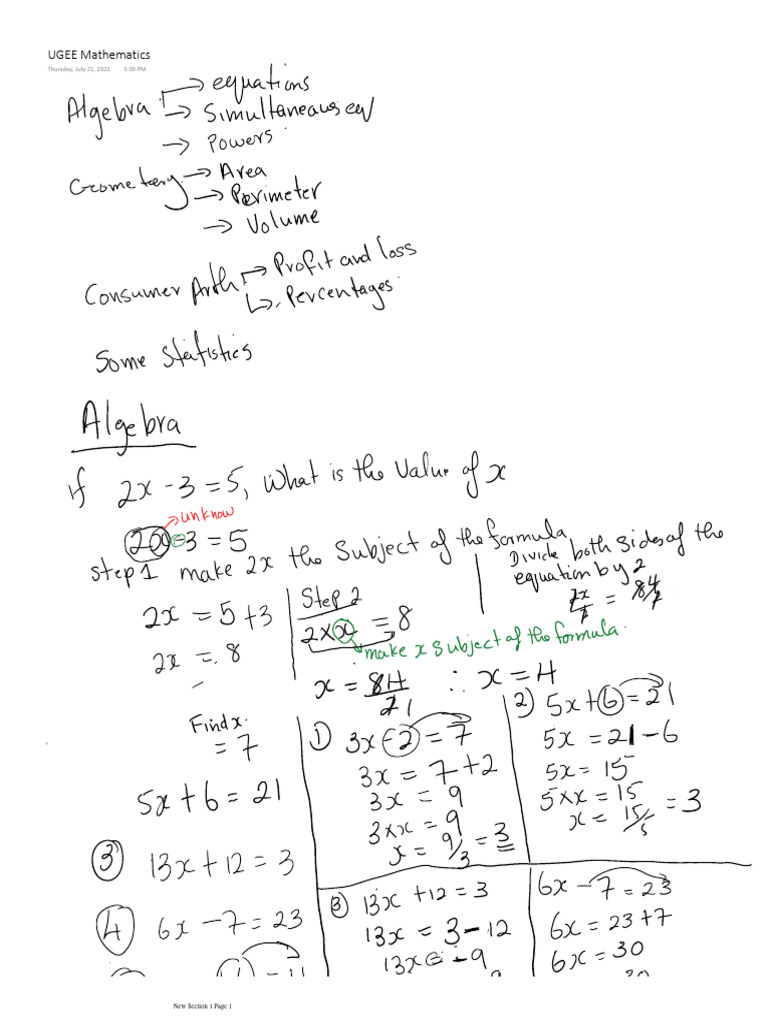 UGEE Mathematics
Thursday, July 21, 2022 5:39 PM
Algebra → equations
→ Simultaneous eq
→ Powers
Geometery → Area
→ Perimeter
→ Volume
Consumer Arth → Profit and loss
→ Percentages
Some Statistics
Algebra
if 2x - 3 = 5, What is the Value of x
→ unknow
2x - 3 = 5
step 1 make 2x the Subject of the formula
2x = 5 + 3
2x = 8
Step 2
2 × x = 8
make x subject of the formula.
Divide both sides of the
equation by 2
2x/2 = 84/2
x = 84/21 ∴ x = 4
Find x.
= 7
5x + 6 = 21
③ 13x + 12 = 3
④ 6x - 7 = 23
1) 3x - 2 = 7
3x = 7 + 2
3x = 9
3 × x = 9
x = 9/3 = 3
2) 5x + 6 = 21
5x = 21 - 6
5x = 15
5 × x = 15
x = 15/5 = 3
③ 13x + 12 = 3
13x = 3 - 12
13x = -9
6x - 7 = 23
6x = 23 + 7
6x = 30
New Section 1 Page 1